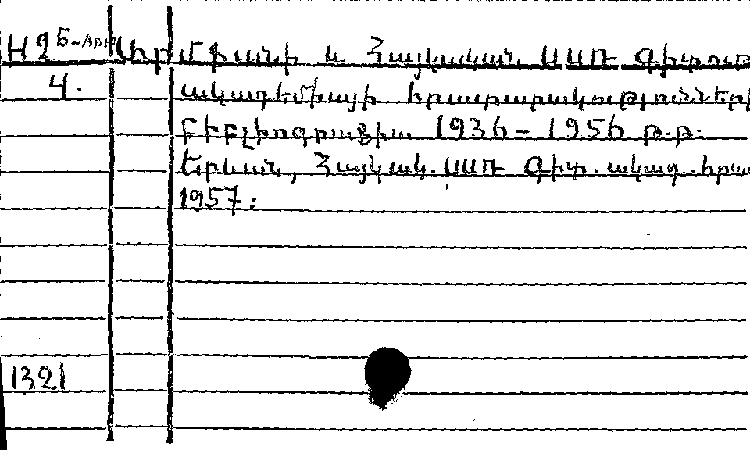 Արմֆանի և Հայկական ՍՍՌ Գիտութ
4. ակադեմիայի հրատարակությունների
բիբլիոգրաֆիա 1936-1956 թ.թ.
Երևան, Հայկական ՍՍՌ Գիտ. ակադ. հրա
1957:
1321